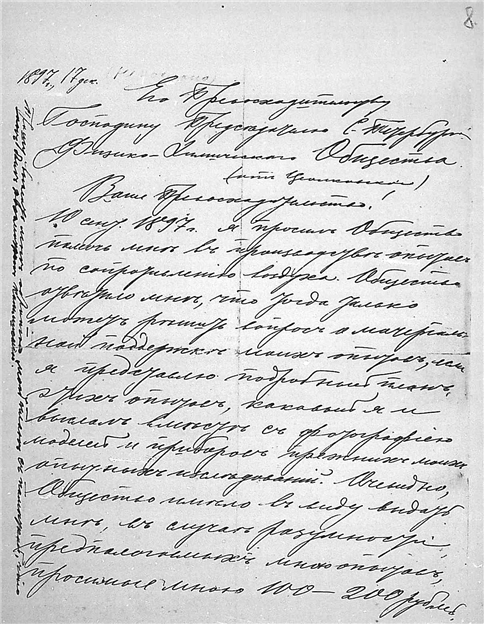 8.
1897 г., 17 дек.
Его Превосходительству
Господину Председателю С.-Петербург.
Физико-Химического Общества
(отъ Ціолковскаго)
Ваше Превосходительство!
10 сент. 1897 г. я просилъ Общество
помочь мнѣ въ производствѣ опытовъ
по сопротивленію воздуха. Общество
отвѣтило мнѣ, что тогда только
можетъ рѣшить вопросъ о матеріаль-
ной поддержкѣ моихъ опытовъ, если
я представлю подробный планъ
этихъ опытовъ, каковый я и
выслалъ вмѣстѣ съ фотографіею
моделей и приборовъ прежнихъ моихъ
опытныхъ изслѣдованій. Очевидно,
Общество имѣло въ виду выдать
мнѣ, въ случаѣ разумности
предположенныхъ мною опытовъ,
просимые мною 100–200 рублей.